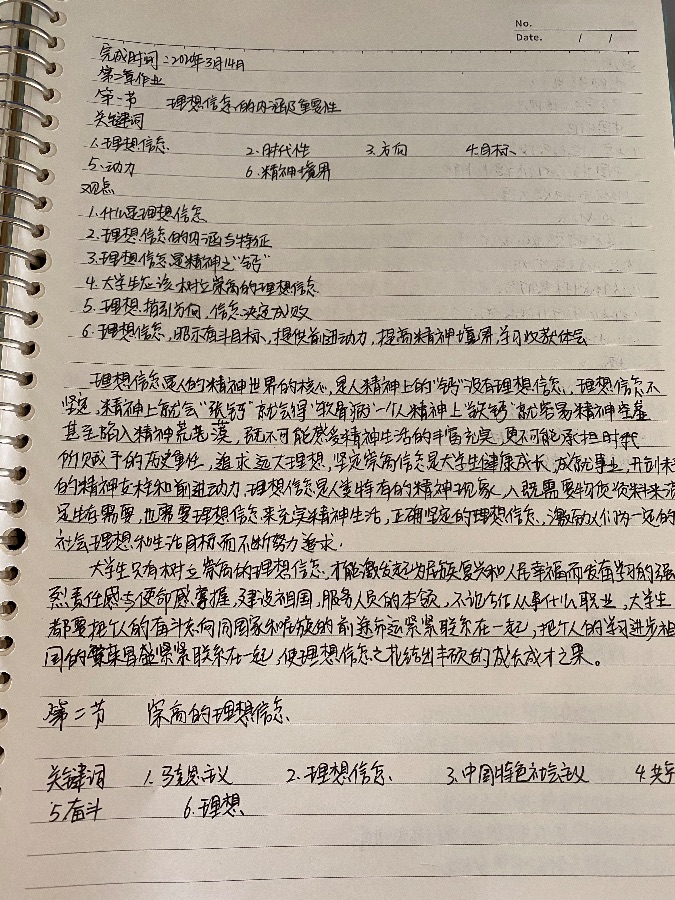 No.
Date. / /
完成时间:2020年3月14日
第二章作业
第一节 理想信念的内涵及重要性
关键词
1.理想信念 2.时代性 3.方向 4.目标
5.动力 6.精神境界
观点
1.什么是理想信念
2.理想信念的内涵与特征
3.理想信念是精神之“钙”
4.大学生应该树立崇高的理想信念
5.理想指引方向,信念决定成败
6.理想信念,昭示奋斗目标,提供前进动力,提高精神境界,学习收获体会
理想信念是人的精神世界的核心,是人精神上的“钙”没有理想信念,理想信念不
坚定,精神上就会“缺钙”就会得“软骨病”一个人精神上“缺钙”就容易精神空虚
甚至陷入精神荒芜漠,既不可能感受精神生活的丰富充实,更不可能承担时代
所赋予的历史重任,追求远大理想,坚定崇高信念是大学生健康成长,成就事业,开创未
的精神支柱和前进动力.理想信念是人类特有的精神现象,人既需要物质资料来满
足生存需要,也需要理想信念来充实精神生活,正确坚定的理想信念,激励人们为一定的
社会理想和生活目标而不断努力追求.
大学生只有树立崇高的理想信念.才能激发起为民族复兴和人民幸福而发奋学习的强
烈责任感与使命感掌握,建设祖国,服务人员的本领,不论今后从事什么职业,大学生
都要把个人的奋斗志向同国家和民族的前途命运紧紧联系在一起,把个人的学习进步祖
国的繁荣昌盛紧紧联系在一起,使理想信念之花结出丰硕的成长成才之果。
第二节 崇高的理想信念
关键词 1.马克思主义 2.理想信念 3.中国特色社会主义 4.共
5.奋斗 6.理想